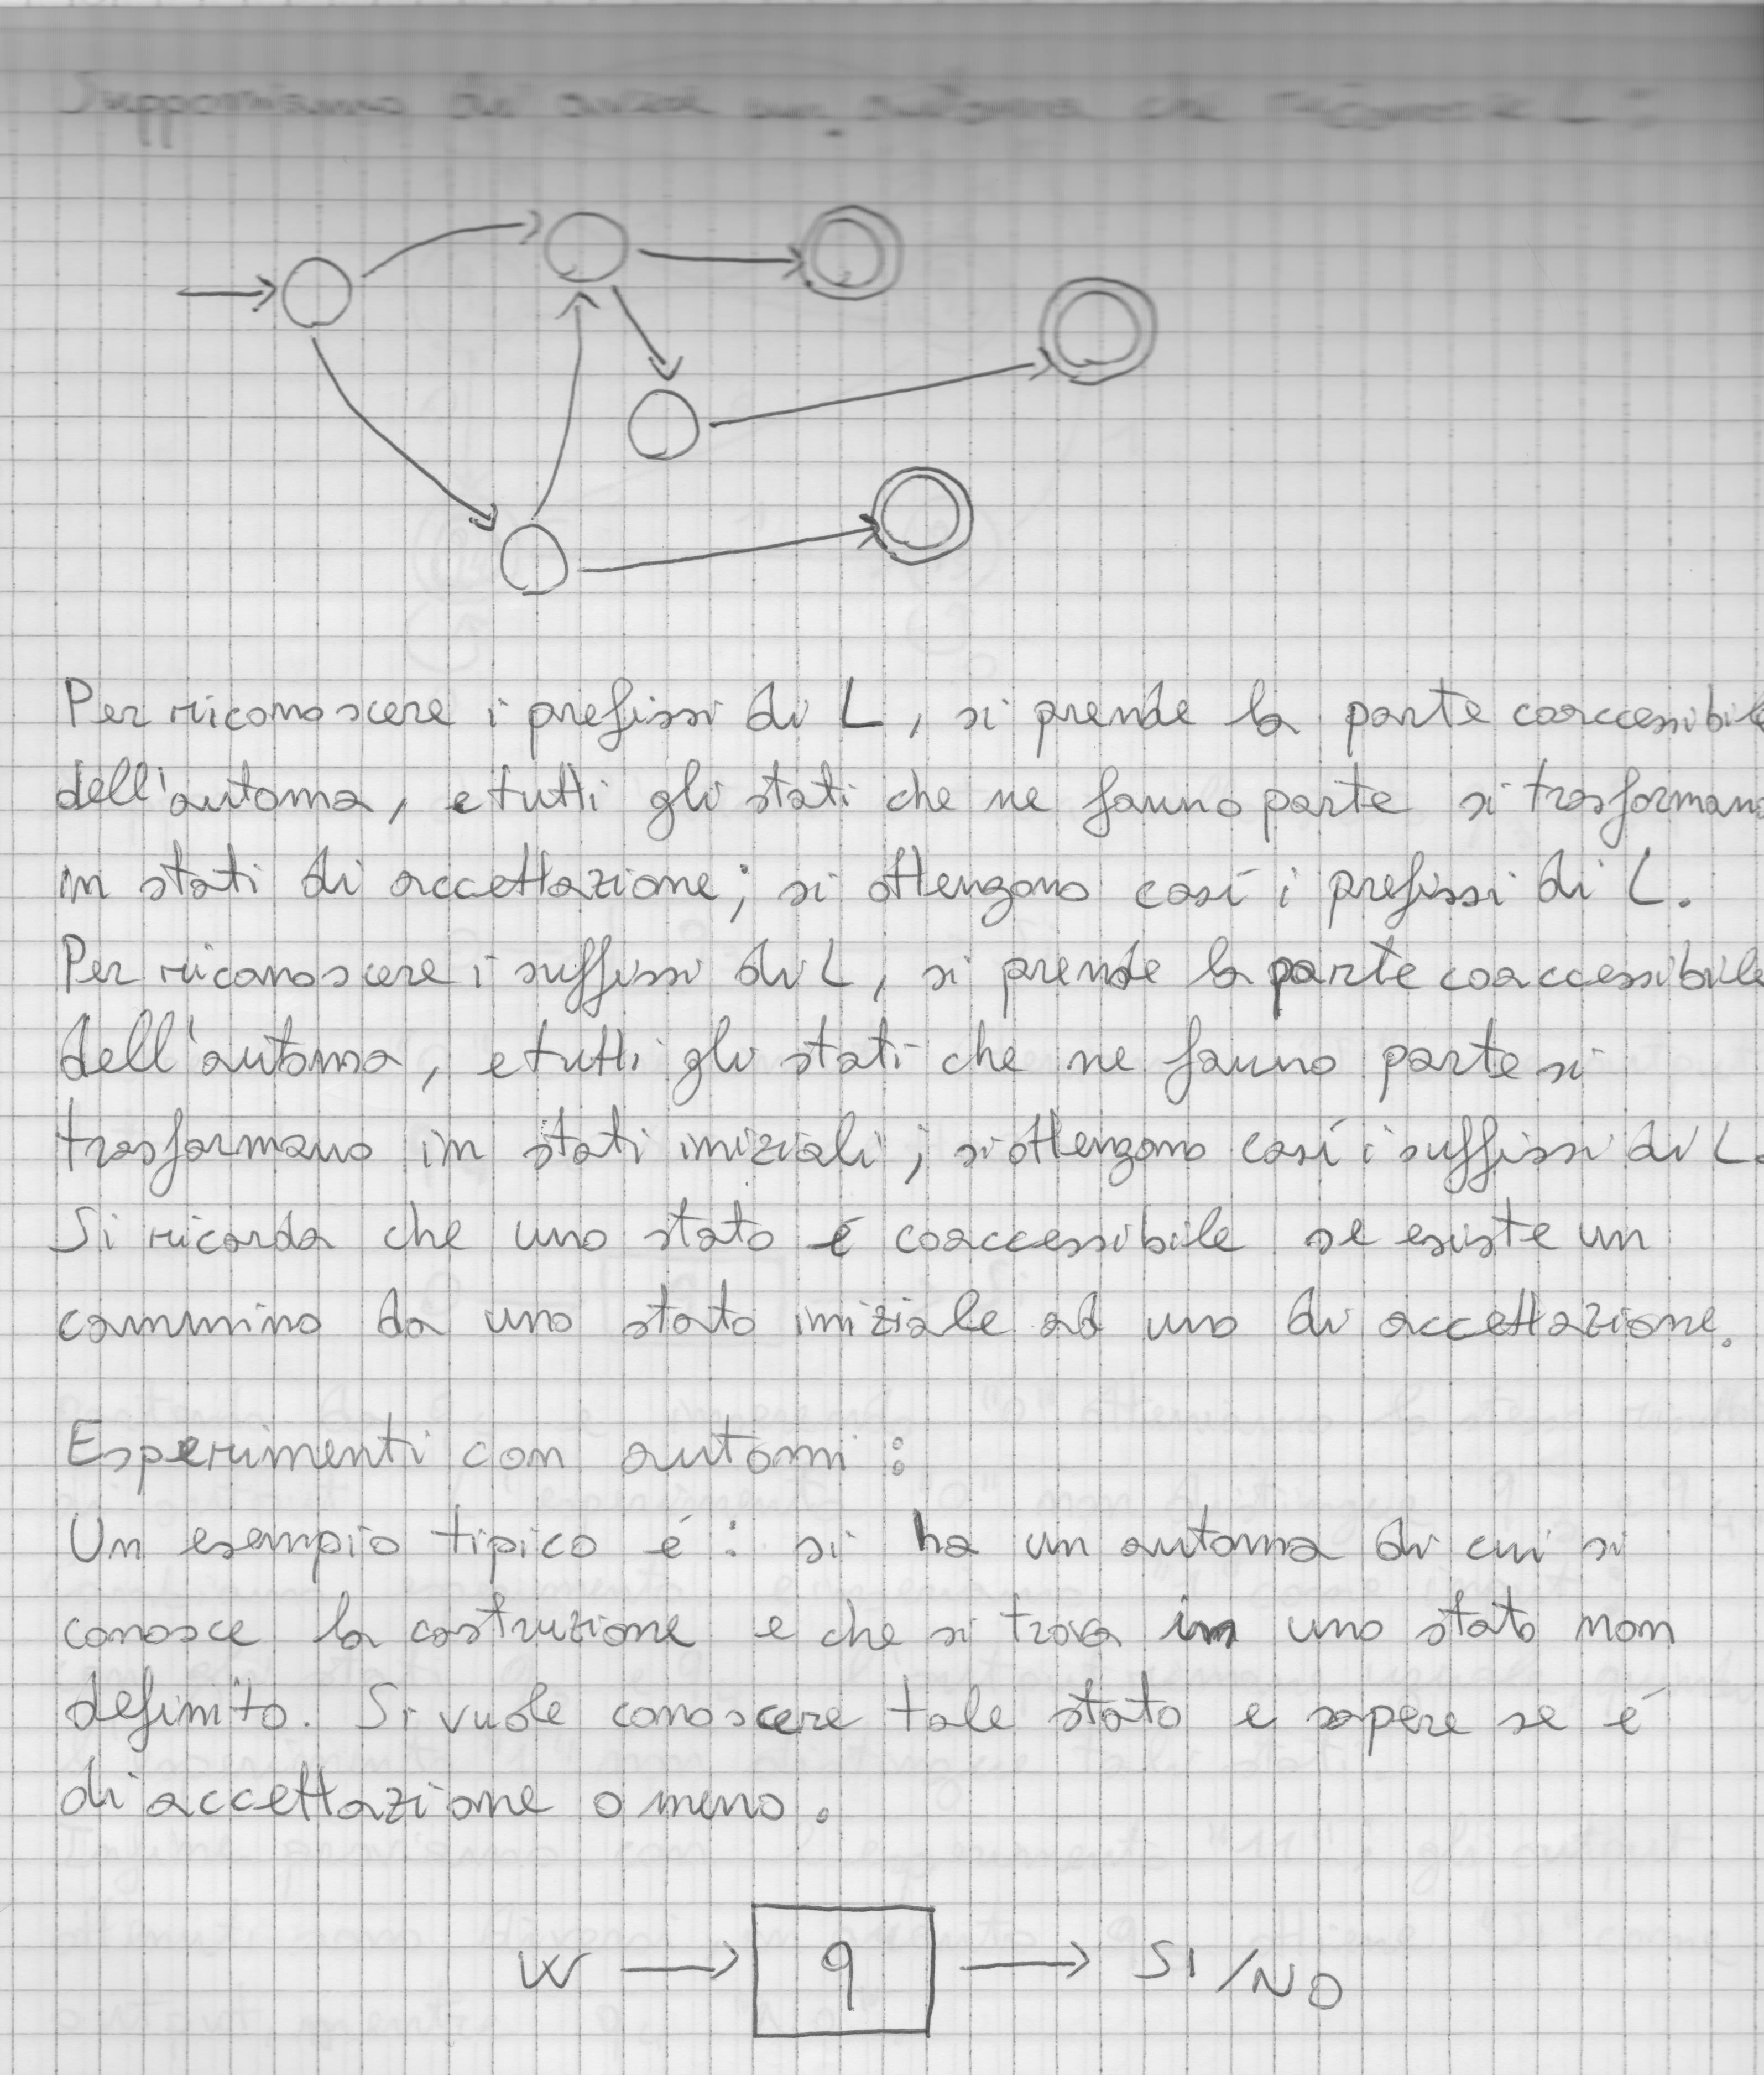 Supponiamo di avere un automa che riconosce L:
Per riconoscere i prefissi di L, si prende la parte coaccessibile
dell'automa, e tutti gli stati che ne fanno parte si trasformano
in stati di accettazione; si ottengono così i prefissi di L.
Per riconoscere i suffissi di L, si prende la parte coaccessibile
dell'automa, e tutti gli stati che ne fanno parte si
trasformano in stati iniziali; si ottengono così i suffissi di L.
Si ricorda che uno stato é coaccessibile se esiste un
cammino da uno stato iniziale ad uno di accettazione.
Esperimenti con automi:
Un esempio tipico é: si ha un automa di cui si
conosce la costruzione e che si trova in uno stato non
definito. Si vuole conoscere tale stato e sapere se é
di accettazione o meno.
W → q → SI/NO